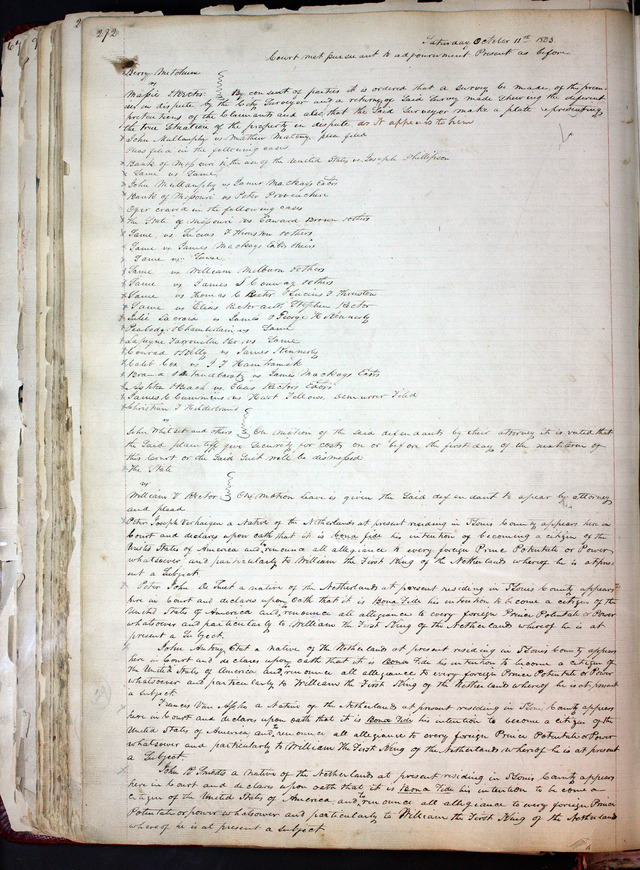 292
Saturday October 11th 1823.
Court met pursuant to adjournment Present as before
Berry Mitchum
vs
Massie & Rector By consent of parties it is ordered that a survey be made of the premi-
ses in dispute by the City Surveyor and a return of said Survey made shewing the different
pretentions of the Claimants and also that the Said Surveyor make a plate representing
the true Situation of the property in dispute as it appears to him
John Mullanphy vs Mathew plea filed
Pleas filed in the following cases
Bank of Missouri to the use of the United States vs Joseph Phillipson
Same vs Same
John Mullanphy vs James Mackays
Bank of Missouri vs Peter Provenchere
Oyer craved in the following cases
The State of Missouri vs Edward Brown & others
Same vs Lucius T Thruston & others
Same vs James Mackays heirs
Same vs Same
Same vs William Milburn & others
Same vs James S Conway & others
Same vs Thomas C Rector & Lucius T Thruston
Same vs Elias Rector Stephen Rector
Julie vs James & George H Kennerly
Peabody & Chamberlain vs Same
vs Same
Conrad & Kelly vs James Kennerly
Caleb Cox vs J F Hamtramck
vs James Mackays
& Beach vs Elias Rectors
James C Cummins vs Hart Fellows Demurrer Filed
Christian F
vs
John Whitset and others On motion of the said defendants by their attorney it is ruled that
the Said plaintiff give Security for costs on or before the first day of the next term of
this Court or the Said Suit will be dismissed
The State
vs
William V Rector On motion leave is given the Said defendant to apear by attorney
and plead
Peter Joseph Verhaegen a Native of the Netherlands at present residing in St Louis County appears here in
Court and declares upon oath that it is bona fide his intention of becoming a citizen of the
United States of America and to renounce all allegiance to every foreign Prince Potentate or Power
whatsoever and particularly to William the First King of the Netherlands whereof he is at pres-
ent a Subject
Peter John De Smet a native of the Netherlands at present residing in St Louis County appears
here in Court and declares upon oath that it is Bona Fide his intention to become a citizen of the
United States of America and to renounce all allegiance to every foreign Prince Potentate or Power
whatsoever and particularly to William the First King of the Netherlands whereof he is at
present a Subject.
John Antony Elet a native of the Netherlands at present residing in St Louis County appears
here in Court and declares upon oath that it is Bona Fide his intention to become a citizen of
the United States of America and to renounce all allegiance to every foreign Prince Potentate or Power
whatsoever and particularly to William the First King of the Netherlands whereof he is at present
a Subject
Francis Van Assche a Native of the Netherlands at present residing in St Louis County appears
here in Court and declares upon oath that it is Bona Fide his intention to become a citizen of the
United States of America and to renounce all allegiance to every foreign Prince Potentate or Power
whatsoever and particularly to William the First King of the Netherlands whereof he is at present
a Subject.
John B Smedts a native of the Netherlands at present residing in St Louis County appears
here in Court and declares upon oath that it is Bona Fide his intention to become a
citizen of the United States of America and to renounce all allegiance to every foreign Prince
Potentate or power whatsoever and particularly to William the First King of the Netherlands
whereof he is at present a Subject.